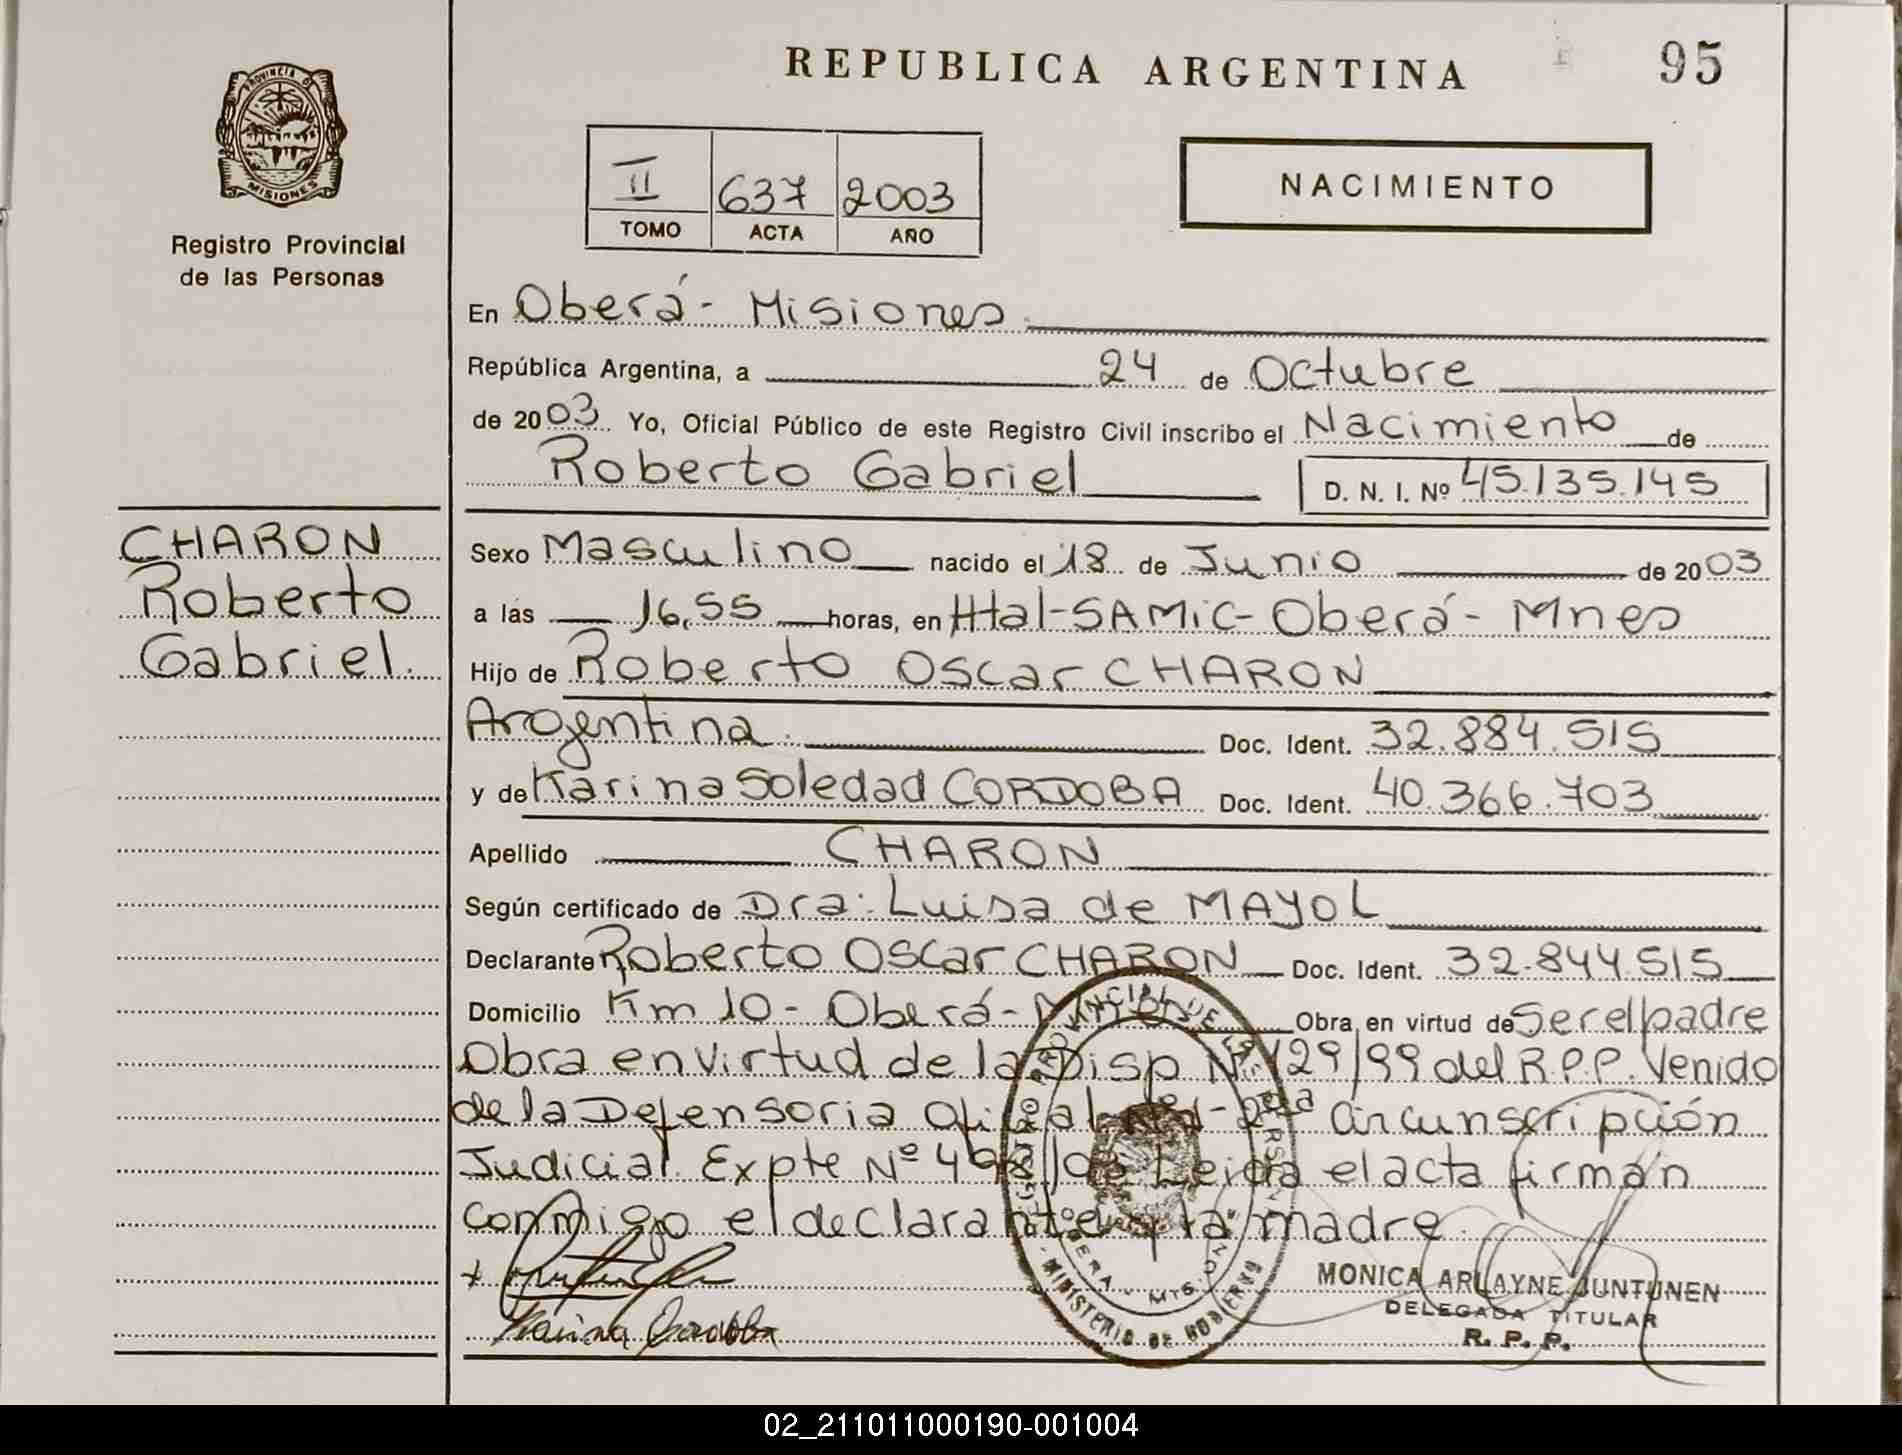 REPUBLICA ARGENTINA
95
PROVINCIA DE
MISIONES
Registro Provincial
de las Personas
II 637 2003
TOMO ACTA AÑO
NACIMIENTO
En Oberá - Misiones.
República Argentina, a 24 de Octubre
de 2003. Yo, Oficial Público de este Registro Civil inscribo el Nacimiento de
Roberto Gabriel D. N. I. Nº 45.135.145
CHARON
Roberto
Gabriel.
Sexo Masculino nacido el 18 de Junio de 2003
a las 16,55 horas, en Htal-SAMIC-Oberá-Mnes
Hijo de Roberto Oscar CHARON
Argentina. Doc. Ident. 32.884.515
y de Karina Soledad CORDOBA Doc. Ident. 40.366.703
Apellido CHARON
Según certificado de Dra: Luisa de MAYOL
Declarante Roberto Oscar CHARON Doc. Ident. 32.844.515
Domicilio Km 10 - Oberá - Obra en virtud de Ser el padre
Obra en virtud de la Disp Nº 129/99 del R.P.P. Venido
de la Defensoria Oficial 2da Circunscripción
Judicial. Expte Nº Leida el acta firman
conmigo el declarante y la madre.
Karina Cordoba
PROVINCIAL DE LAS PERSONAS
OBERA - MTS.
MINISTERIO DE GOBIERNO
MONICA ARLAYNE JUNTUNEN
DELEGADA TITULAR
R. P. P.
02_211011000190-001004